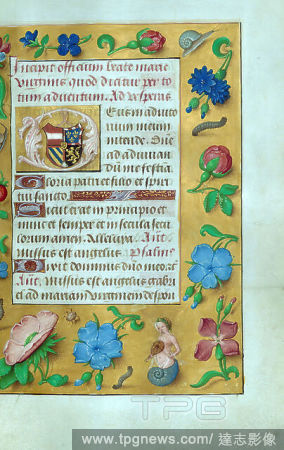 Incipit officium beate marie
virginis quod dicitur per to
tum adventum. Ad vesperas
Deus in adiuto
rium meum
intende. Domine
ad adiuvan
dum me festina
Gloria patri et filio et spiri
tui sancto
Sicut erat in principio et
nunc et semper et in secula secu
lorum amen. Alleluya. Ant.
Missus est angelus Psalmus
Dixit dominus domino meo
Ant. Missus est angelus gabri
el ad mariam virginem despon
TPG
www.tpgnews.com / 達志影像